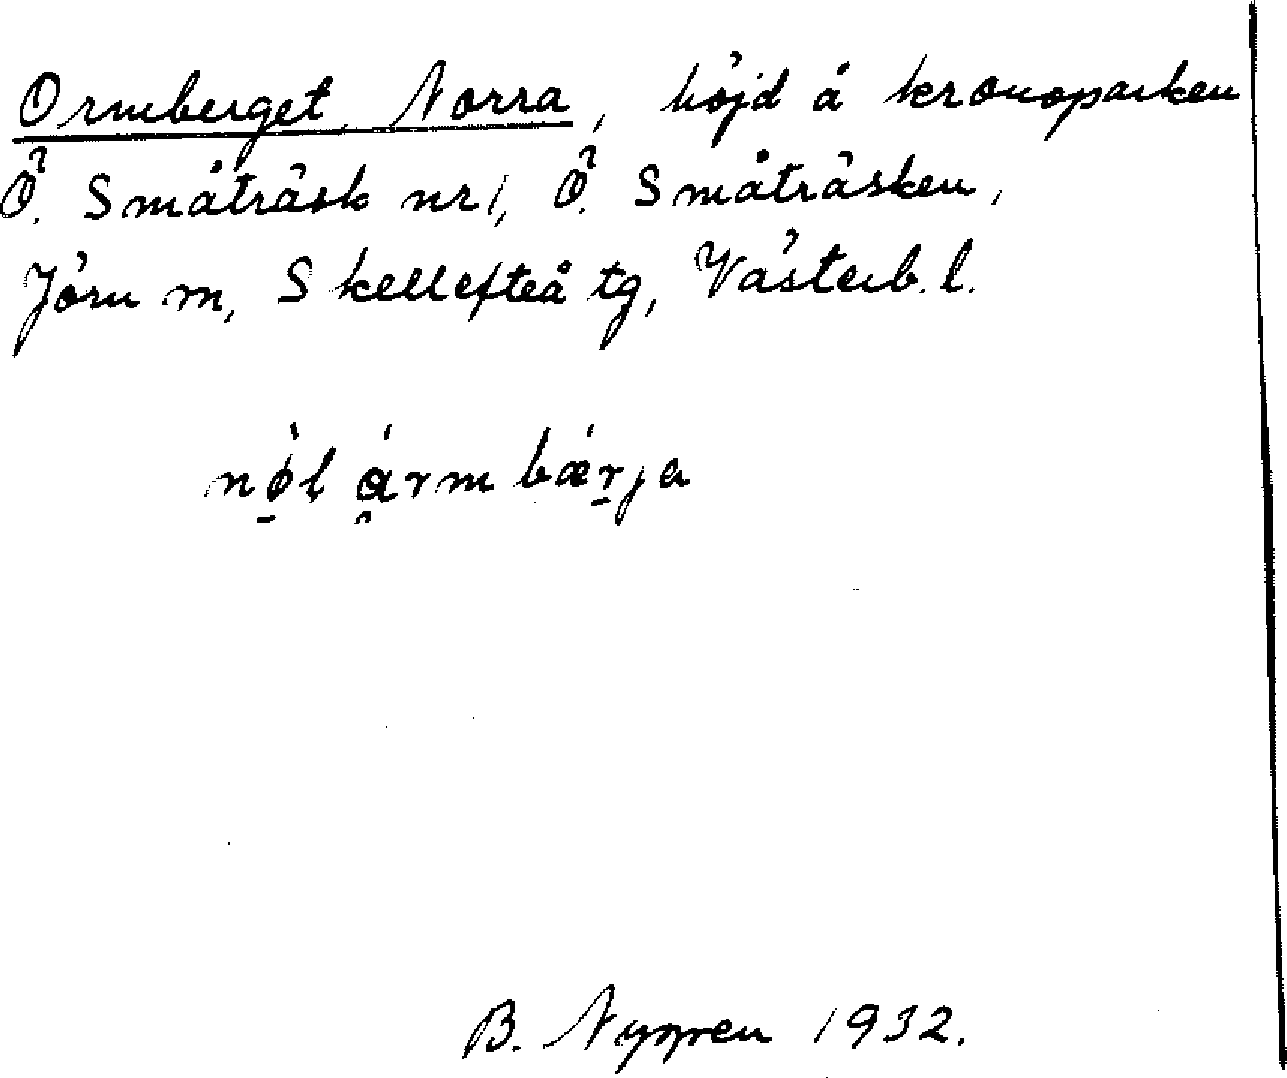 Ormberget, Norra, höjd å kronoparken
Ö. Småträsk nr 1, Ö. Småträsken,
Jörn sn, Skellefteå tg, Västerb. l.
nø̱̀l ármbǽr̠ja
B. Nygren 1932.